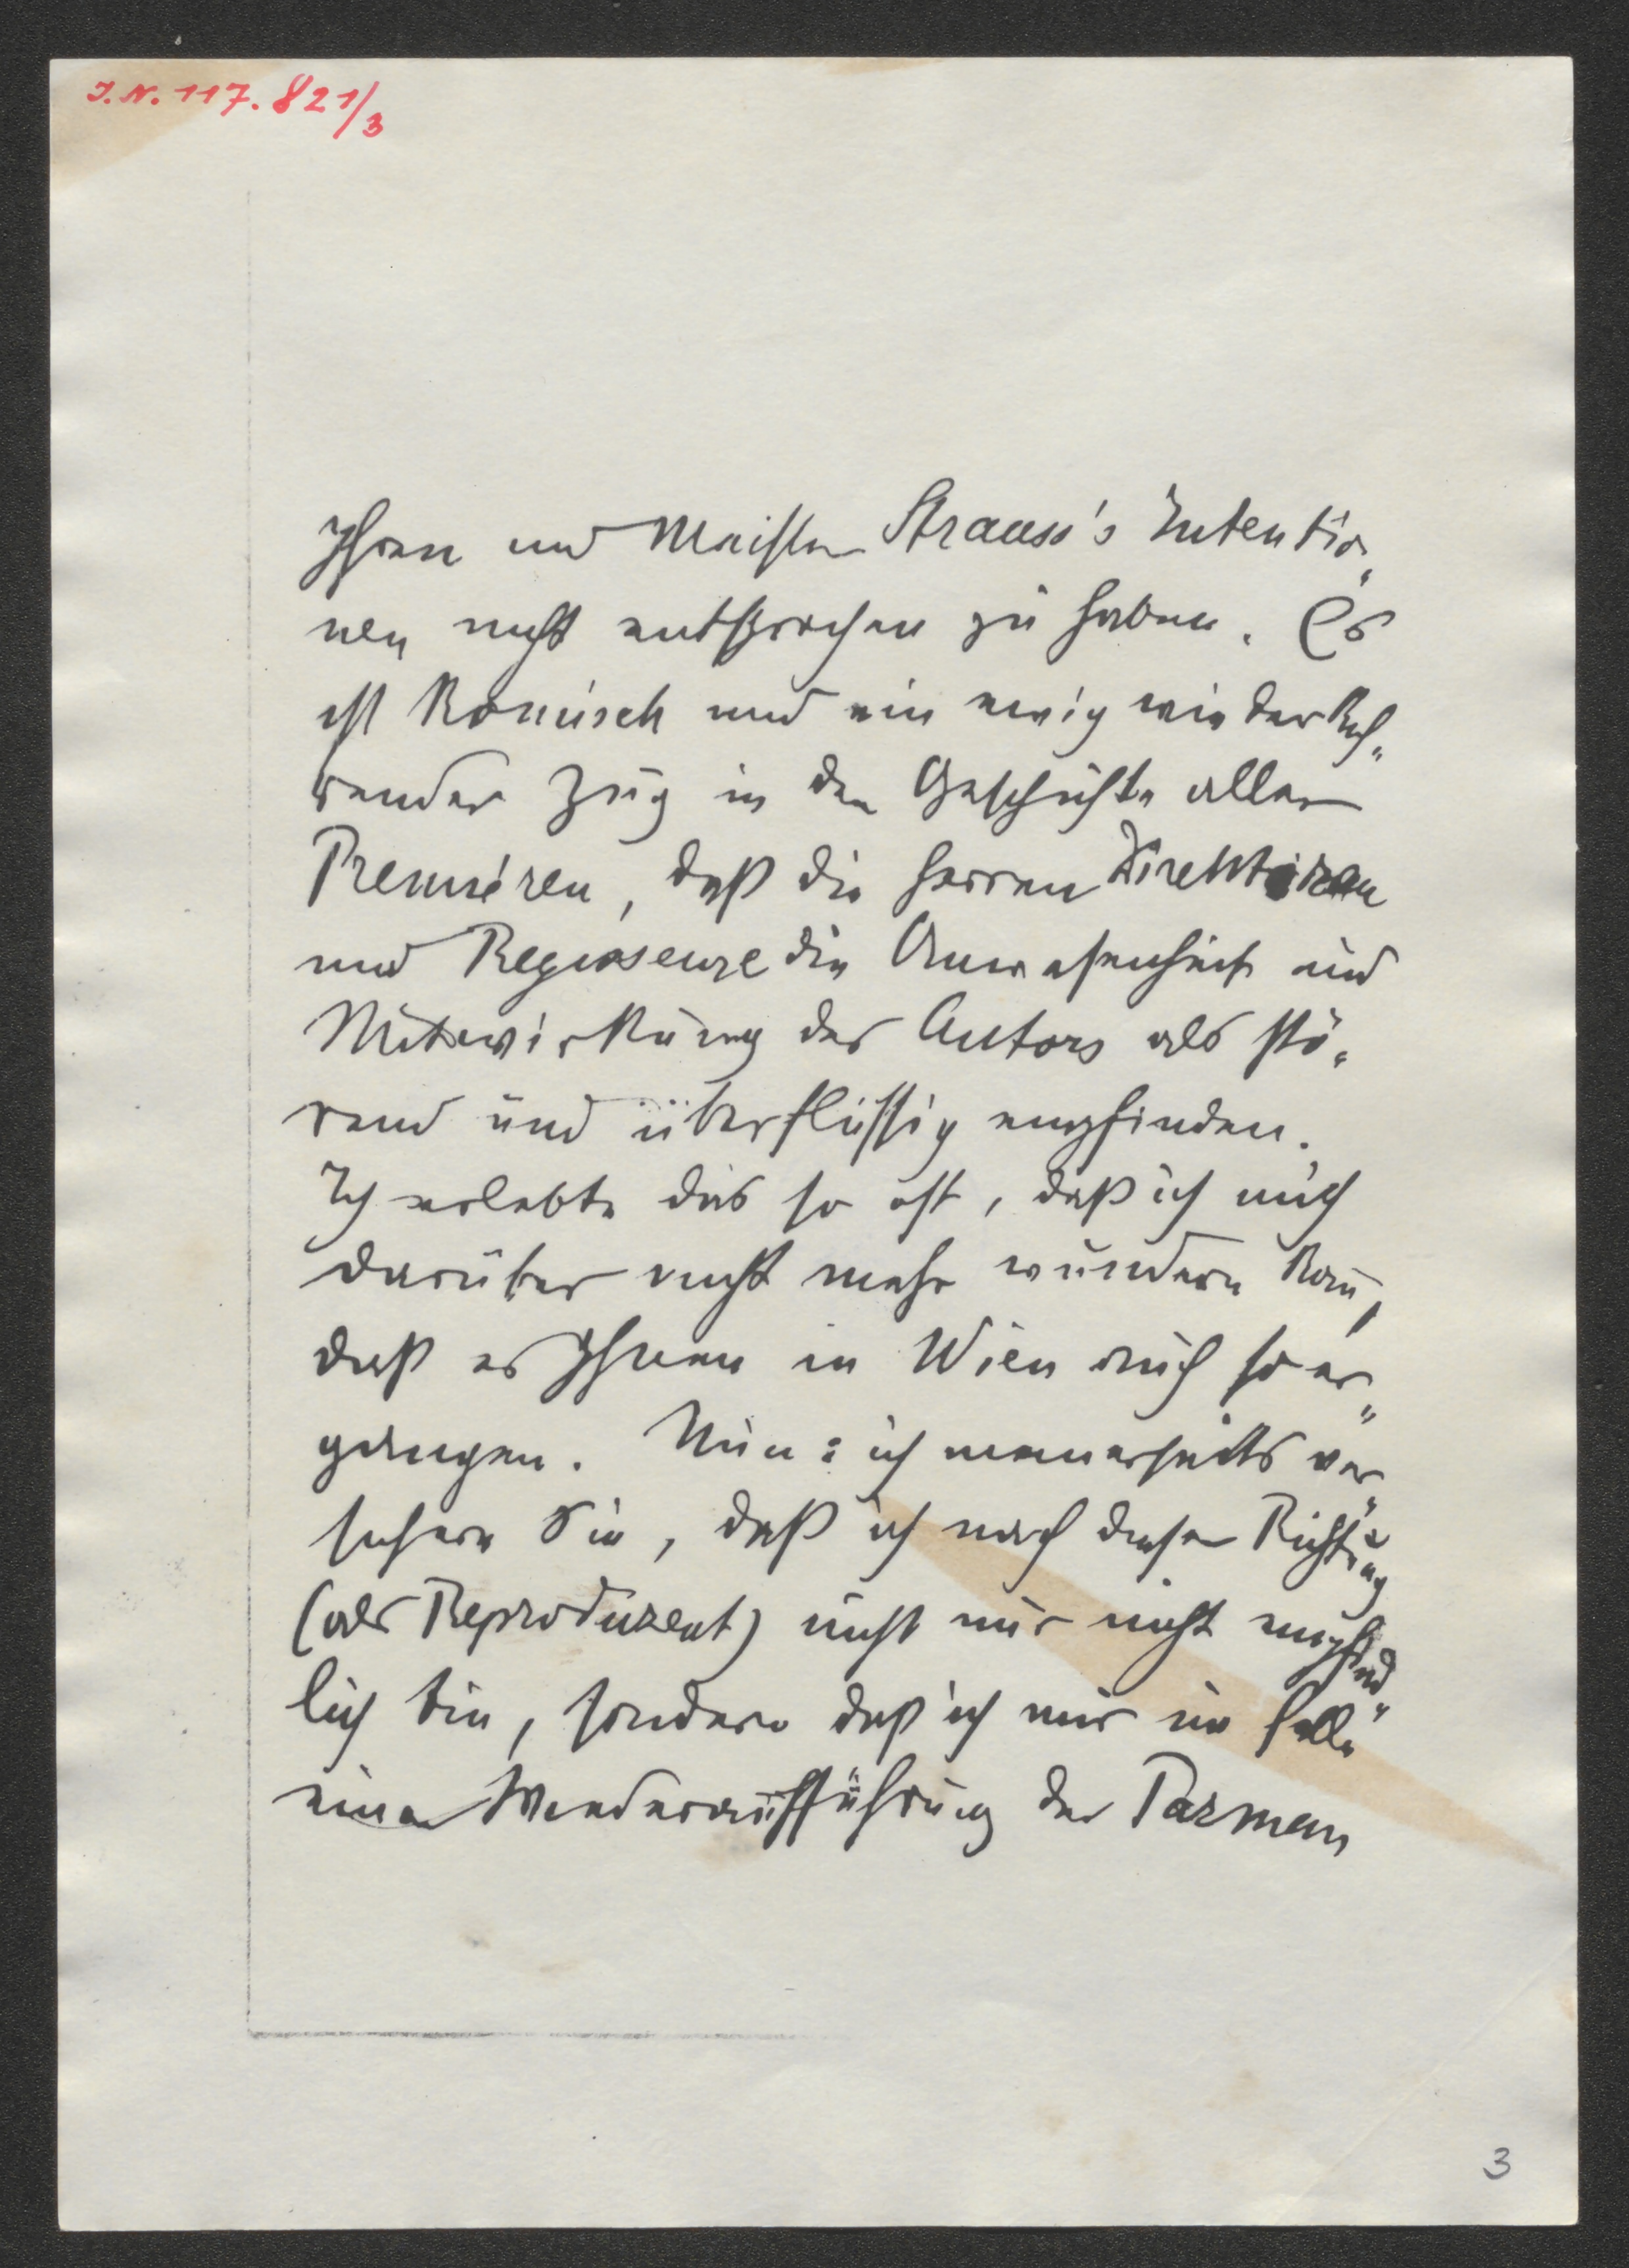 J.N. 117.821/3
Ihren und Meister Strauss's Intentio„
nen nicht entsprochen zu haben. Es
ist komisch und ein ewig wiederkeh„
render Zug in der Geschichte aller
Premièren, daß die Herren Direktoren
und Regisseure die Anwesenheit und
Mitwirkung des Autors als stö„
rend und überflüssig empfinden.
Ich erlebte dies so oft, daß ich mich
darüber nicht mehr wundern kan̄,
daß es Ihnen in Wien auch so er„
gangen. Nun: ich meinerseits ver„
sichere Sie, daß ich nach dieser Richtung
(als Reproduzent) nicht nur nicht empfind„
lich bin, sondern daß ich mir im Falle
einer Wiederaufführung der Tarman
3